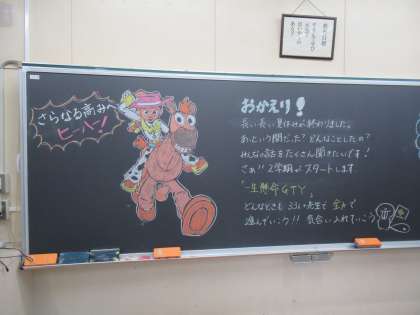 さらなる高みへ
ヒーハー!
おかえり!
長い長い夏休みが終わりました。
あっという間だった?どんなことしたの?
みんなの話をたくさん聞きたいです!
さぁ!!2学期がスタートします
一生懸命GTY、
どんなときも
全力で
進んでいこう!!気合い入れていこう